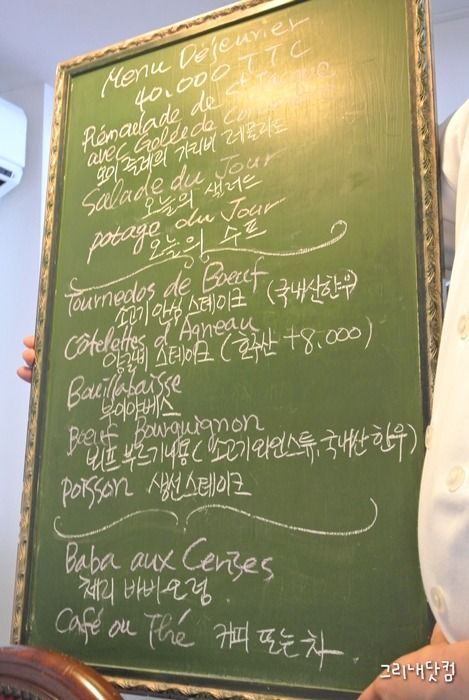 Menu Déjeuner
40.000 TTC
Rémoulade de St Jacque
avec Gelée de
오이 쥴레의 가리비 레물라드
Salade du Jour
오늘의 샐러드
potage du Jour
오늘의 수프
Tournedos de Bœuf
소고기 안심 스테이크 (국내산한우)
Côtelettes d'Agneau
양갈비 스테이크 (호주산 +8.000)
Bouillabaisse
부이야베스
Bœuf Bourguignon
뵈프 부르기뇽 (소고기 와인스튜, 국내산 한우)
poisson 생선스테이크
Baba aux Cerises
체리 바바오럼
Café ou Thé 커피 또는 차
그리내닷컴